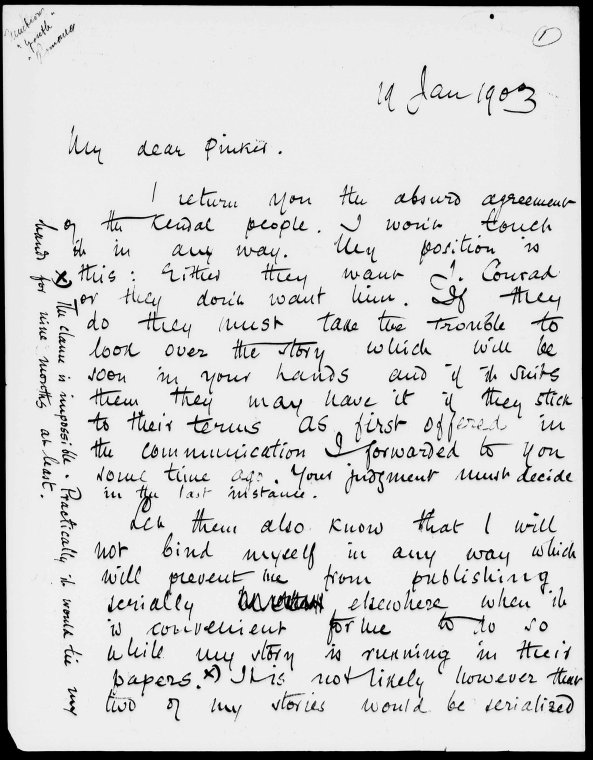 "Youth"
1
19 Jan 1903
My dear Pinker.
I return you the absurd agreement
of the Kendal people. I won't touch
it in any way. My position is
this: Either they want J. Conrad
or they don't want him. If they
do they must take the trouble to
look over the story which will be
soon in your hands and if it suits
them they may have it if they stick
to their terms as first offered in
the communication I forwarded to you
some time ago. Your judgment must decide
in the last instance.
Let them also know that I will
not bind myself in any way which
will prevent me from publishing
serially elsewhere when it
is convenient for me to do so
while my story is running in their
papers. x) It is not likely however that
two of my stories would be serialized
x) The clause is impossible. Practically it would tie my
hands for nine months at least.